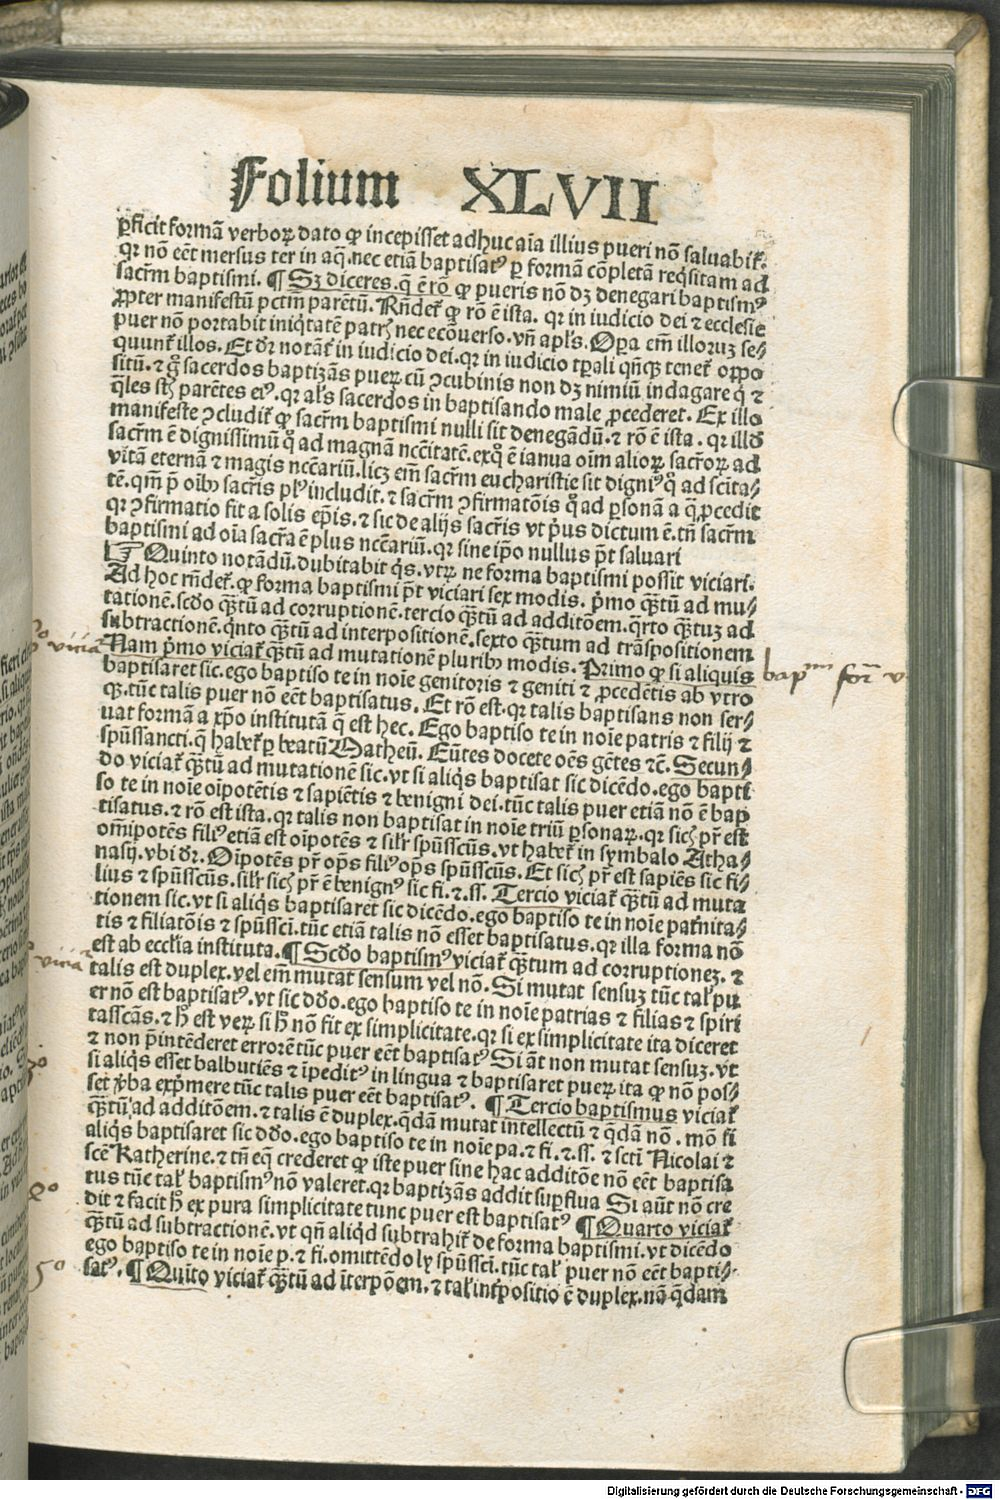 Folium XLVII
ꝑficit formã verboꝝ dato ꝙ incepisset adhuc aĩa illius pueri nõ saluabit̃.
qꝛ nõ eẽt mersus ter in aq̃. nec etiã baptisatꝰ ꝑ formã cõpletã reqͥsitam ad
sacrm̃ baptismi. ¶ Sꝫ diceres. q̃ ẽ rõ ꝙ pueris nõ dꝫ denegari baptismꝰ
ꝓpter manifestũ pctm̃ parẽtũ. Rñdet̃ ꝙ rõ ẽ ista. qꝛ in iudicio dei ⁊ ecclesie
puer nõ portabit iniqͥtatẽ patrꝭ nec ecõuerso. vñ apl's. Oꝑa em̃ illoruꝫ se⸗
quunt̃ illos. Et dr̃ notãt̃ in iudicio dei. qꝛ in iudicio tꝑali qñqꝫ tenet̃ oppo
situ᷑. ⁊ gͦ sacerdos baptizãs pueꝝ cũ ꝯcubinis non dꝫ nimiũ indagare qͥ ⁊
q̃les st̃ parẽtes eiꝰ. qꝛ al's sacerdos in baptisando male ꝓcederet. Ex illo
manifeste ꝯcludit̃ ꝙ sacrm̃ baptismi nulli sit denegãdũ. ⁊ rõ ẽ ista. qꝛ illď
sacrm̃ ẽ dignissimũ qͦ ad magnã nccĩtatẽ. ex qͦ ẽ ianua oĩm alioꝝ sacroꝝ ad
vitã eternã ⁊ magis nccãriũ. licꝫ em̃ sacrm̃ eucharistie sit digniꝰ qͦ ad scĩta⸗
tẽ. qm̃ p̃ oĩbꝰ sacris plꝰ includit. ⁊ sacrm̃ ꝯfirmatõis qͦ ad ꝑsonã a q̃ ꝓcedit
qꝛ ꝯfirmatio fit a solis ep̃is. ⁊ sic de alijs sacris vt pͥus dictum ẽ. tñ sacrm̃
baptismi ad oĩa sacra ẽ plus nccãriũ. qꝛ sine ip̃o nullus põt saluari
☞ Quinto notãdũ. dubitabit qͥs. vtꝝ ne forma baptismi possit viciari.
Ad hoc rñdet̃. ꝙ forma baptismi põt viciari sex modis. pͥmo q̃tũ ad mu⸗
tationẽ. scďo q̃tũ ad corruptionẽ. tercio q̃tũ ad additõem. qͣrto q̃tuꝫ ad
subtractionẽ. qͥnto q̃tũ ad interpositionẽ. sexto q̃tum ad trãspositionem
Nam pͥmo viciat̃ q̃tũ ad mutationẽ pluribꝰ modis. Primo ꝙ si aliquis
baptisaret sic. ego baptiso te in noĩe genitoris ⁊ geniti ⁊ ꝓcedẽtis ab vtro
qꝫ. tũc talis puer nõ eẽt baptisatus. Et rõ est. qꝛ talis baptisans non ser⸗
uat formã a xp̃o institutã q̃ est hec. Ego baptiso te in noĩe patris ⁊ filij ⁊
spũssancti. q̃ habet̃ ꝑ beatũ Matheũ. Eũtes docete oẽs gẽtes ⁊c̃. Secun⸗
do viciat̃ q̃tũ ad mutationẽ sic. vt si aliqͥs baptisat sic dicẽdo. ego bapti
so te in noĩe oĩpotẽtis ⁊ sapiẽtis ⁊ benigni dei. tũc talis puer etiã nõ ẽ bap
tisatus. ⁊ rõ est ista. qꝛ talis non baptisat in noĩe triũ ꝑsonaꝝ. qꝛ sicꝫ pr̃ est
om̃ipotẽs filiꝰ etiã est oĩpotẽs ⁊ silr̃ spũsscũs. vt habet̃ in symbalo Atha⸗
nasij. vbi dr̃. Oĩpotẽs pr̃ op̃s filiꝰ op̃s spũsscũs. Et sicꝫ pr̃ est sapiẽs sic fi⸗
lius ⁊ spũsscũs. silr̃ sicꝫ pr̃ ẽ benignꝰ sic fi. ⁊. ss. Tercio viciat̃ q̃tũ ad muta
tionem sic. vt si aliqͥs baptisaret sic dicẽdo. ego baptiso te in noĩe patr̃nita⸗
tis ⁊ filiatõis ⁊ spũsscĩ. tũc etiã talis nõ esset baptisatus. qꝛ illa forma nõ
est ab eccl'ia instituta. ¶ Scďo baptismꝰ viciat̃ q̃tum ad corruptioneꝫ. ⁊
talis est duplex. vel em̃ mutat sensum vel nõ. Si mutat sensuꝫ tũc tal' pu
er nõ est baptisatꝰ. vt sic dďo. ego baptiso te in noĩe patrias ⁊ filias ⁊ spiri
tasscãs. ⁊ h̃ est veꝝ si h̃ nõ fit ex simplicitate. qꝛ si ex simplicitate ita diceret
⁊ non p̃intẽderet errorẽ tũc puer eẽt baptisatꝰ Si aũt non mutat sensuꝫ. vt
si aliqͥs esset balbutiẽs ⁊ ĩpeditꝰ in lingua ⁊ baptisaret pueꝝ ita ꝙ non pos⸗
set v̾ba exp̃mere tũc talis puer eẽt baptisatꝰ. ¶ Tercio baptismus viciat̃
q̃tũ ad additõem. ⁊ talis ẽ duplex. qͣdã mutat intellectũ ⁊ qͣdã nõ. mõ si
aliqͥs baptisaret sic dďo. ego baptiso te in noĩe pa. ⁊ fi. ⁊. ss. ⁊ sctĩ Nicolai ⁊
scẽ Katherine. ⁊ tñ eq̃ crederet ꝙ iste puer sine hac additõe nõ eẽt baptisa
tus tũc tal' baptismꝰ nõ valeret. qꝛ baptizãs addit suꝑflua Si aũt nõ cre
dit ⁊ facit h̃ ex pura simplicitate tunc puer est baptisatꝰ ¶ Quarto viciat̃
q̃tũ ad subtractionẽ. vt qñ aliqͥd subtrahit̃ de forma baptismi. vt dicẽdo
ego baptiso te in noĩe p. ⁊ fi. omittẽdo ly spũsscĩ. tũc tal' puer nõ eẽt bapti⸗
satꝰ. ¶ Quĩto viciat̃ q̃tũ ad ĩterpõem. ⁊ tal' int̾positio ẽ duplex. nã qͣdam
bapᵐⁱ for̃
5º
Digitalisierung gefördert durch die Deutsche Forschungsgemeinschaft - DFG